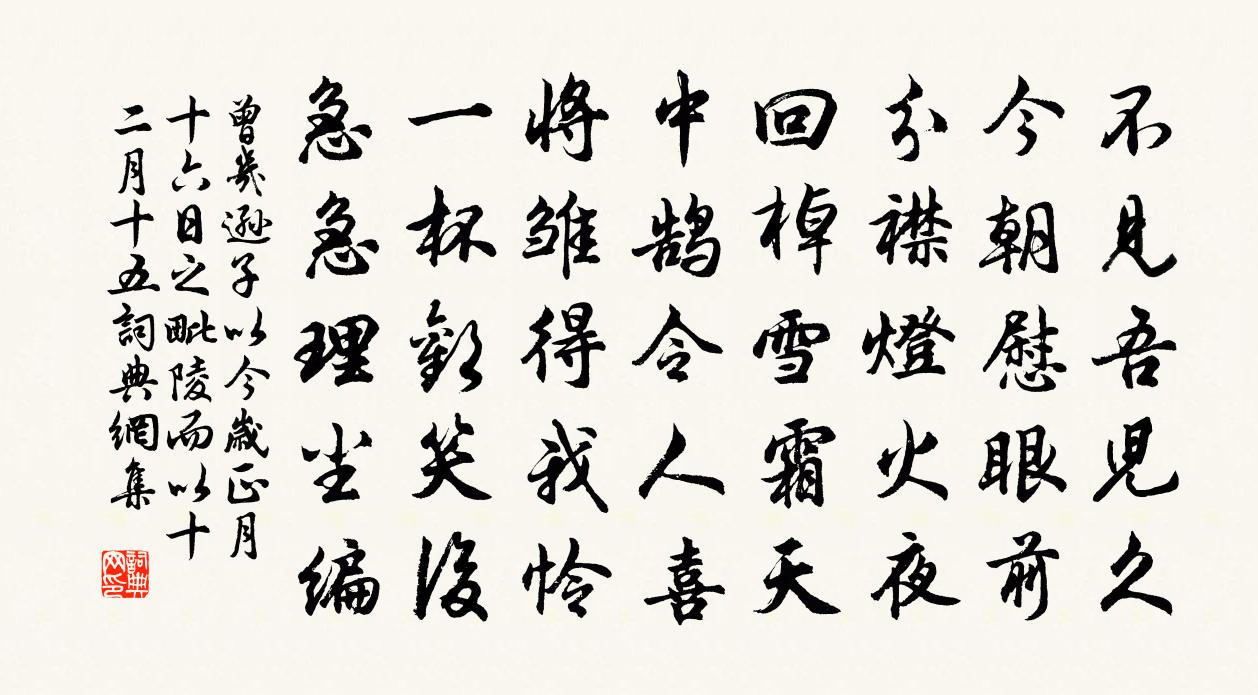 不見吾兒久
今朝慰眼前
分襟燈火夜
回棹雪霜天
中鵠令人喜
將雛得我怜
一杯歡笑後
急急理尘编
曾幾遜子以今歲正月
十六日之毗陵而以十
二月十五詞典網集
詞典
网印